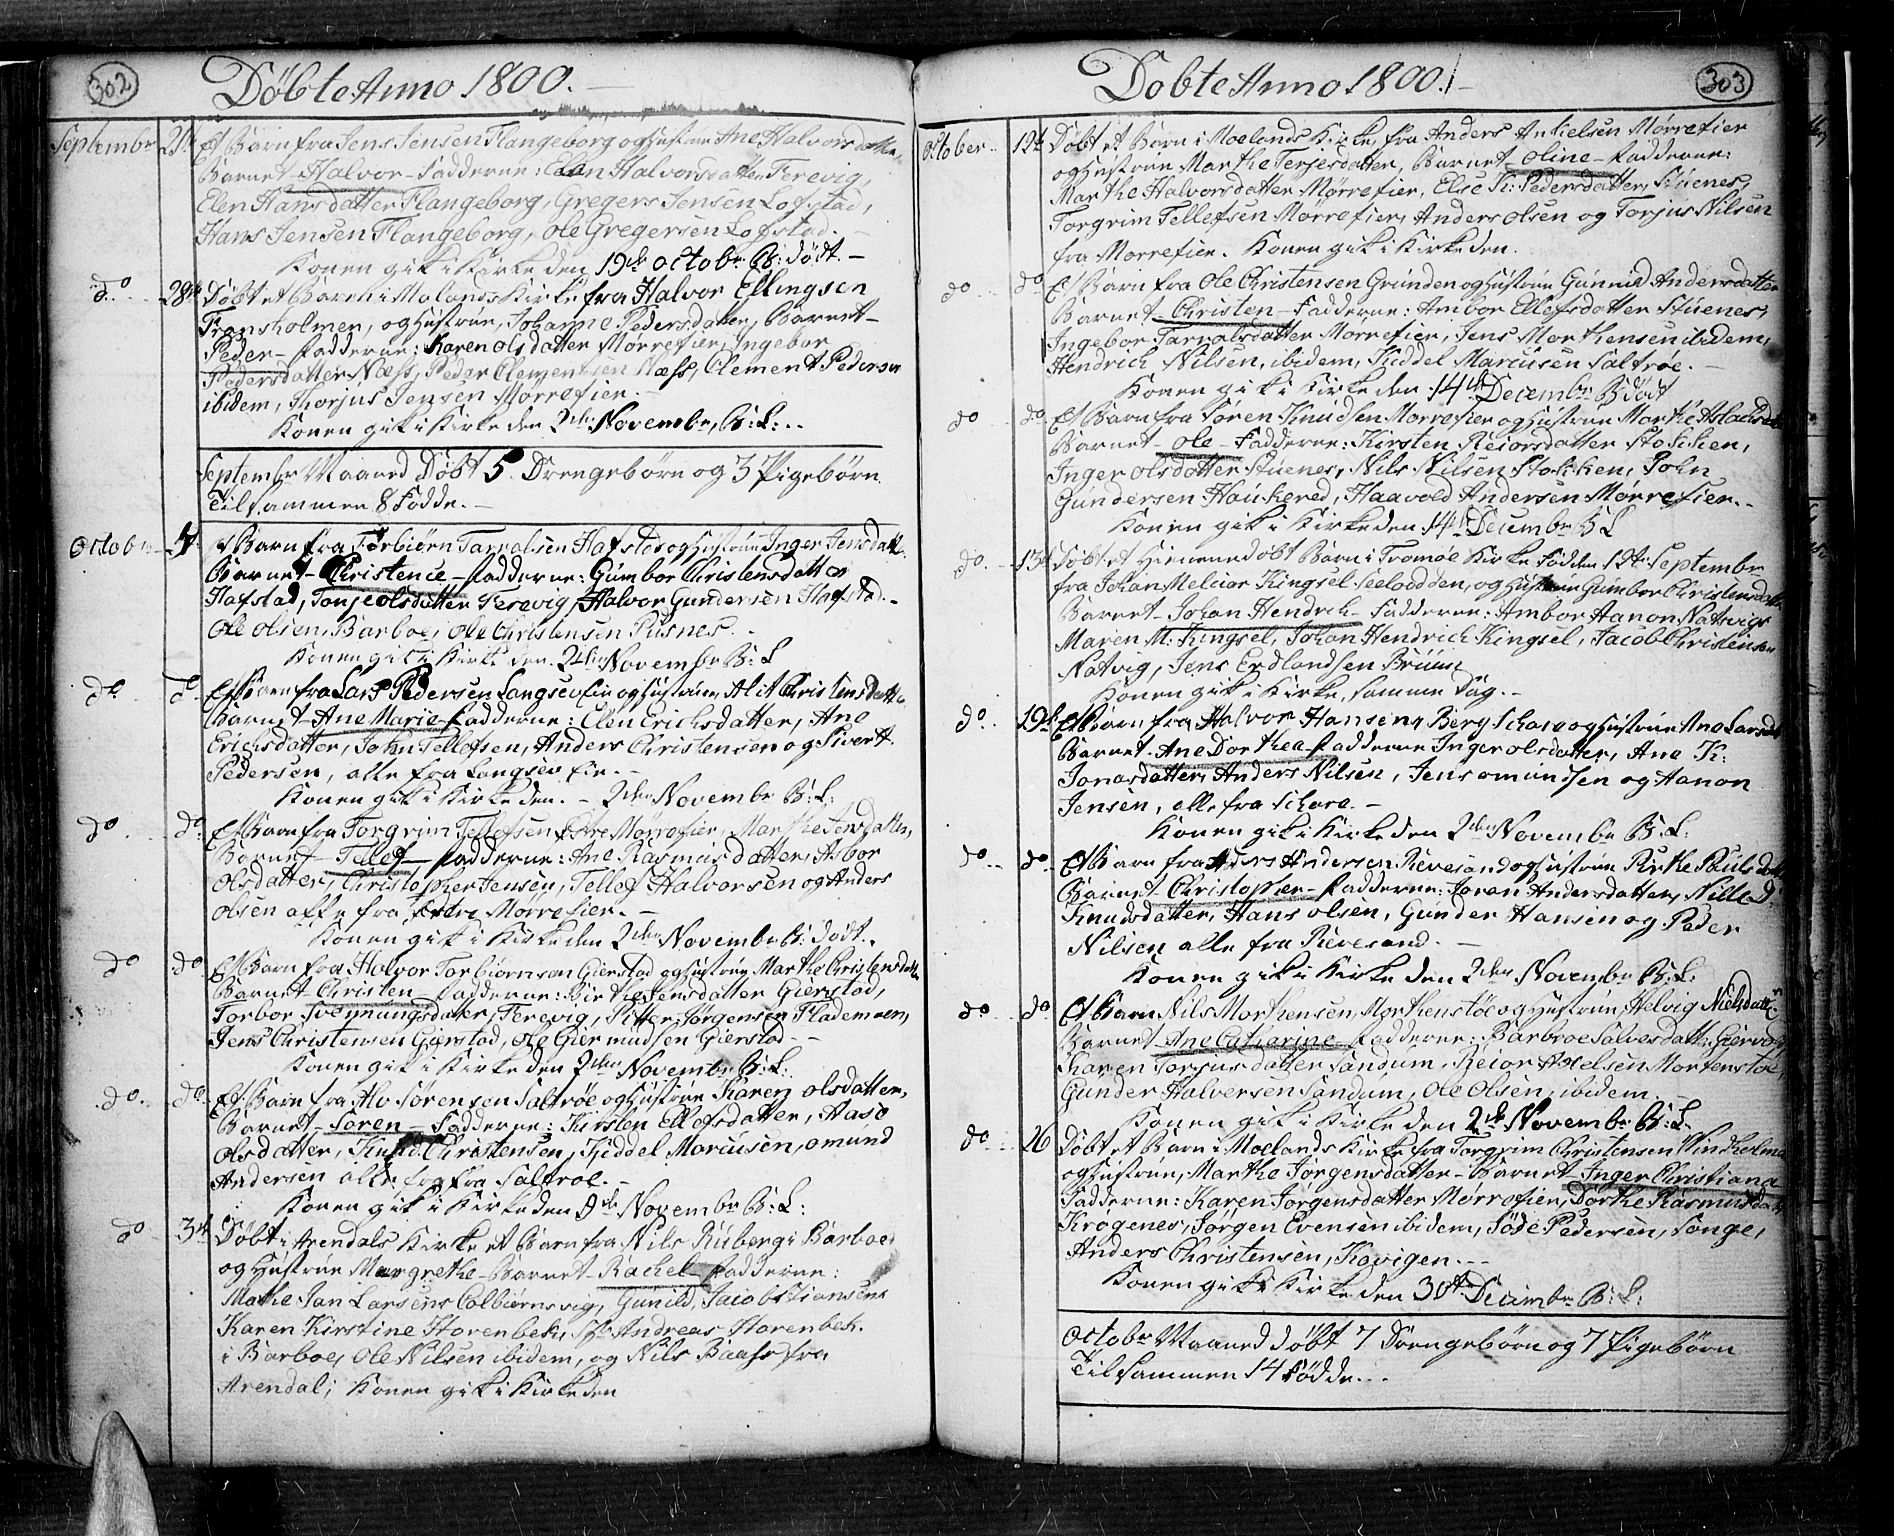 302
Døbte Anno 1800.
September 21t Et Barn fra Jens Jensen Flangeborg og Hustrue Ane Halvorsdatter,
Barnet Halvor Fadderne: Elen Halvorsdatter Terevig,
Elen Hansdatter Flangeborg, Gregers Jensen Lofstad,
Hans Jensen Flangeborg, Ole Gregersen Lofstad.
Konen gik i Kirke den 19de octobr. B: dødt.
do 28de Døbt et Barn i Molands Kirke fra Halvor Ellingsen
Fransholmen, og Hustrue, Johanne Pedersdatter, Barnet
Peder - Fadderne: Karen olsdatter Mørrefier, Ingebor
Pedersdatter Næss, Peder Clementsen Næss, Clement Pedersen
ibidem, Thorjus Jensen Mørrefier.
Konen gik i Kirke den 2den Novembr, B: L:
Septembr Maaned Døbt 5 Drengebørn og 3 Pigebørn
Tilsammen 8 Fødde.
Octobr. Et Barn fra Torbiørn Tarralsen Hafsted og Hustrue Inger Jensdatt.
Barnet - Christence - Fadderne: Gumbor Christensdatter
Hafstad, Tonje olsdatter Terevig, Halvor Gundersen Hafstad.
Ole olsen, Barboe, Ole Christensen Pusnes.
Konen gik i Kirke den 2den Novembr B: L
do do Et Barn fra Lars Pedersen Langsev Eie og Hustrue, Alit Christensdatter
Barnet Ane Marie Fadderne: Elen Erichsdatter, Ane
Erichsdatter, John Tellefsen, Anders Christensen og Sivert
Pedersen, alle fra Langsev Eie.
Konen gik i Kirke den. 2den Novembr B: L:
do do Et Barn fra Torgrim Tellefsen Østre Mørrefier, Marthe Jensdatter,
Barnet Tellef Fadderne: Ane Rasmusdatter, Asbor
olsdatter, Christopher Jensen, Tellef Halvorsen og Anders
olsen alle fra Østre Mørrefier.
Konen gik i Kirke den 2den Novembr B: dødt.
do do Et Barn fra Halvor Torbiørnsen Gierstad og Hustrue Marthe Christensdatter
Barnet Christen Fadderne: Birthe Jensdatter Gierstad,
Torbor Svennungsdater, Terevig, Petter Jørgensen Flademoen,
Jens Christensen Gierstad, Ole Giermundsen Gierstad
Konen gik i Kirke den 2den Novembr B: L:
do do Et Barn fra Alv Sørensen Saltrøe og Hustrue Karen olsdatter,
Barnet Søren Fadderne: Kirsten Ellefsdatter, Aase
olsdatter, Knud Christensen, Kiddel Marcusen, omund
Andersen alle fra Saltrøe.
Konen gik i Kirke den 9de Novembr B: L:
do Døbt i Arendals Kirke et Barn fra Nils Ruberg i Barboe
og Hustrue Margrethe Barnet Rachel Fadderne:
Mathe Jan Larsens Colbiørnsvig, Gunild Jacob Tiansens
Karen Kirstine Horenbek, Andreas Horenbek.
i Barboe, Ole Nilsen ibidem, og Nils Baass fra
Arendal; Konen gik i Kirke den
303
Døbte Anno 1800.
October 12t Døbt et Barn i Moelands Kirke fra Anders Ankielsen Mørrefier
og Hustrue Marthe Terjesdatter, Barnet - Oline - Fadderne:
Marthe Halvorsdatter Mørrefier, Else K: Pedersdatter, Stuenes,
Torgrim Tellefsen Mørrefier, Anders olsen og Torjus Nilsen
fra Mørrefier. Konen gik i Kirke den.
do do Et Barn fra Ole Christensen Grunden og Hustrue Gunnild Andersdatter
Barnet - Christen - Fadderne: Ambor Ellefsdatter Stuenes,
Ingebor Tarralsdatter Mørrefier, Jens Morthensen ibidem,
Hendrich Nilsen, ibidem, Kiddel Marcusen Saltrøe.
Konen gik i Kirke den 14de Decembr B: dødt
do do Et Barn fra Søren Knudsen Mørrefier og Hustrue Marthe
Barnet - Ole - Fadderne: Kirsten Reiorsdatter Stokken,
Inger Olsdatter Stuenes, Nils Nilsen Stokken, John
Gundersen Haukered, Haavold Andersen Mørrefier.
Konen gik i Kirke den 14de Decembr B L
do 13t Døbt et Hiemmedøbt Barn i Tromøe Kirke Fødden 12t Septembr
fra Johan Melcior Kingsel Seeladden, og Hustrue Gumbor Christensdatter
Barnet Johan Hendrich Fadderne: Ambor Hanon Natvigs
Maren M: Kingsel, Johan Hendrich Kingsel, Jacob Christensen
Natvig, Jens Erdlandsen Bruun
Konen gik i Kirke, samme Dag.
do 19de Et Barn fra Halvor Hansen Berg Schare og Hustrue Ane Larsdt
Barnet Ane Dorthea Fadderne Inger olsdatter, Ane K:
Jonasdatter, Anders Nilsen, Jens omundsen og Hanon
Jensen, alle fra Schare.
Konen gik i Kirke den 2den Novembr B: L:
do do Et Barn fra Anders Andersen Revesand og Hustrue Birthe Pouls datt
Barnet Christopher Fadderne: Joran Andersdatter, Nillo D
Knudsdatter, Hans olsen, Gunder Hansen og Peder
Nilsen alle fra Revesand.
Konen gik i Kirke den 2den Novembr B: L:
do do Et Barn Nils Morthensen, Morthenstøe og Hustrue, Helvig Nielsdatter
Barnet Ane Catharine Fadderne: Barbroe Salvesdatt: Giervold
Karen Torjusdatter Sandum, Reior Axelsen Mortenstøe
Gunder Halversen Sandum, Ole Olsen, ibidem.
Konen gik i Kirke den 2de Novembr B: L
do 26 Døbt et Barn i Moelands Kirke fra Torgrim Christensen Vindholmen
og Hustrue, Marthe Jørgensdatter - Barnet Inger Christiana
Fadderne: Karen Jørgensdatter Mørrefier, Dorthe Rasmusdatt
Krogenes, Jørgen Evensen ibidem, Søde Pedersen, Songe,
Anders Christensen, Kovigen.
Konen gik i Kirke den 30te Decembr B: L:
Octobr Maaned døbt 7 Drengebørn og 7 Pigebørn
Tilsammen 14 Fødde.